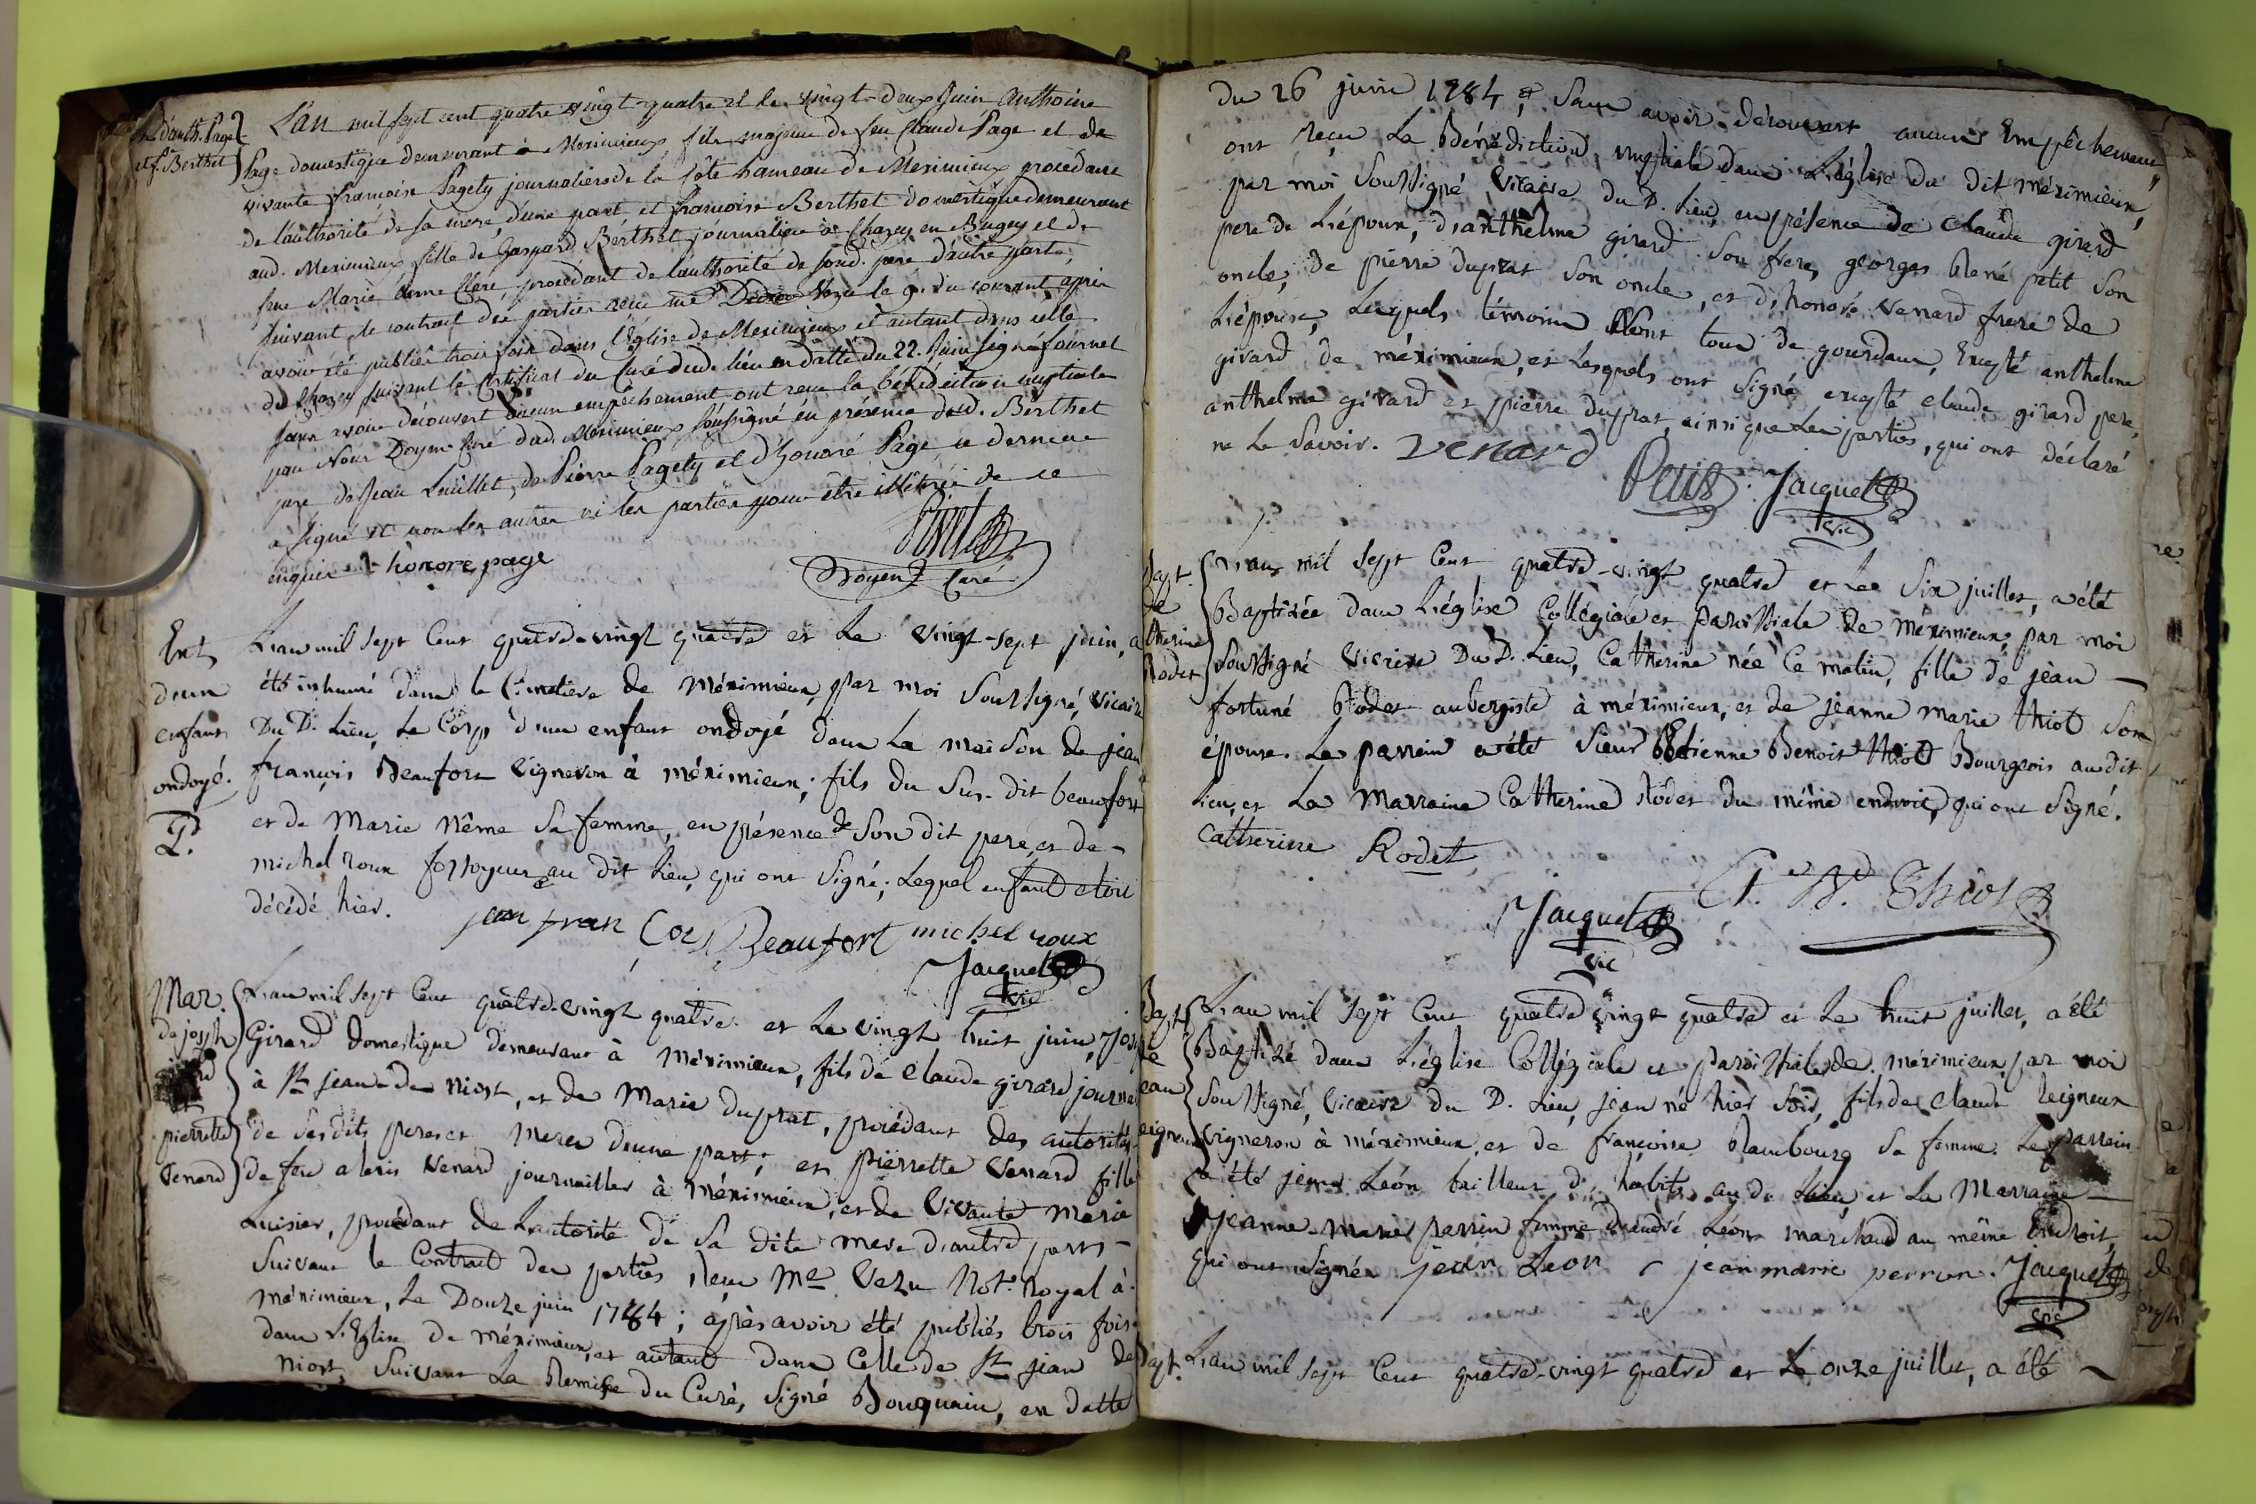 d'anth. Page
et f. Berthet
L'an mil sept cent quatre vingt-quatre et le vingt-deux Juin Anthoine
Page domestique demeurant à Meximieux fils majeur de feu Claude Page et de
vivante francoise Pagety journaliers de la côte hameau de Meximieux procédant
de l'authorité de sa mere, d'une part et francoise Berthet domestique demeurant
aud. Meximieux fille de Gaspard Berthet journalier à Chazey en Bugey et de
feue Marie procédant de l'authorité de sond. pere d'autre part,
suivant le contract des parties reçu me Vezu le 9. du courant, après
avoir été publiés trois fois dans l'église de Meximieux et autant dans celle
de Chazey suivant le certificat du curé dud. lieu en datte du 22. Juin signé fournet
sans avoir découvert aucun empêchement ont reçu la bénédiction nuptiale
par Nous Doyen Curé dud. Meximieux soussigné en présence dud. Berthet
pere de Jean Luillet, de Pierre Pagety et d'honoré Page ce dernier
a signé et non les autres ni les parties pour être illitérés de ce
enquis honore page
Doyen Curé
Ent.
d'un
enfant
ondoyé.
L'an mil sept Cent quatre-vingt quatre et le vingt-sept juin, a
été inhumé dans le Cimetiere de méximieux, par moi soussigné, vicaire
Du D. Lieu, Le Corp d'un enfant ondoyé dans La maison de jean
françois Beaufort vigneron à méximieux; fils du Sus-dit beaufort
et de Marie Nême Sa femme, en présence de Son dit pere, et de -
michel roux fossoyeur au dit Lieu, qui ont Signé; Lequel enfant etoit
décédé hier.
jean francois Beaufort michel roux
Jacquet
vic
Mar.
de joseph
et
pierrette
Venard
L'an mil sept Cent quatre-vingt quatre et Le vingt huit juin, Joseph
Girard domestique demeurant à Méximieux, fils de Claude girard journal
à St jean de niost, et de Marie Duprat, procédant des autorités
de ses dits peres et meres d'une part; et pierrette Venard fille
de feu alexis Venard journallier à méximieux, et de Vivante marie
Luisier, procédant de L'autorité de Sa dite mere d'autre part -
Suivant le Contract des parties, reçu Me Vezu Not. Royal à
méximieux, Le Douze juin 1784; après avoir été publiés trois fois
dans L'Eglise de méximieux, et autant dans Celle de St jean de
niost, Suivant La Remise du Curé, Signé Bouquain, en datte
du 26 juin 1784, et Sans avoir découvert aucuns Empêchement,
ont reçu La Bénédiction nuptiale dans L'église du dit méximieux,
par moi Soussigné Vicaire du D. Lieu, en présence de Claude girard
pere de L'époux, d'anthelme girard Son frere, georges René petit Son
oncle, de pierre duprat Son oncle, et d'honoré Venard frere de
L'épouse, Lesquels témoins sont tous de gourdans, Excepté anthelme
girard, de méximieux, et Lesquels ont Signé excepté claude girard pere,
anthelme girard et pierre duprat, ainsi que Les parties, qui ont déclaré
ne Le Savoir. Venard
Petit Jacquet
vic
Bapt.
de
Catherine
Rodet
L'an mil sept Cent quatre-vingt quatre et Le Six juillet, a été
Baptisée dans L'église Collégiale et paroissiale de méximieux, par moi
Soussigné Vicaire Du D. Lieu, Catherine née Ce matin, fille de jean -
fortuné Rodet aubergiste à méximieux, et de jeanne marie thiot Son
épouse. Le parrein a été Sieur Etienne Benoit thiot Bourgeois au dit
Lieu, et La Marraine Catherine Rodet du même endroit, qui ont Signé.
Catherine Rodet
Et. Bt. Thiot
Jacquet
vic
Bapt.
de
jean
Reigneux
L'an mil sept Cent quatre vingt quatre et Le huit juillet, a été
Baptisé dans L'église Collégiale et paroissiale de méximieux, par moi
Soussigné, Vicaire du D. Lieu, jean né hier Soir, fils de Claude Reigneux
vigneron à méximieux, et de françoise Rambourg Sa femme. Le parrein
a été jean Léon tailleur d'habits au d. Lieu, et La Marraine -
jeanne-Marie perrin femme d'andré Léon marchand au même Endroit,
qui ont signé. jean Leon jean marie perron. Jacquet
vic
Bapt. L'an mil sept Cent quatre-vingt quatre et Le onze juillet, a été